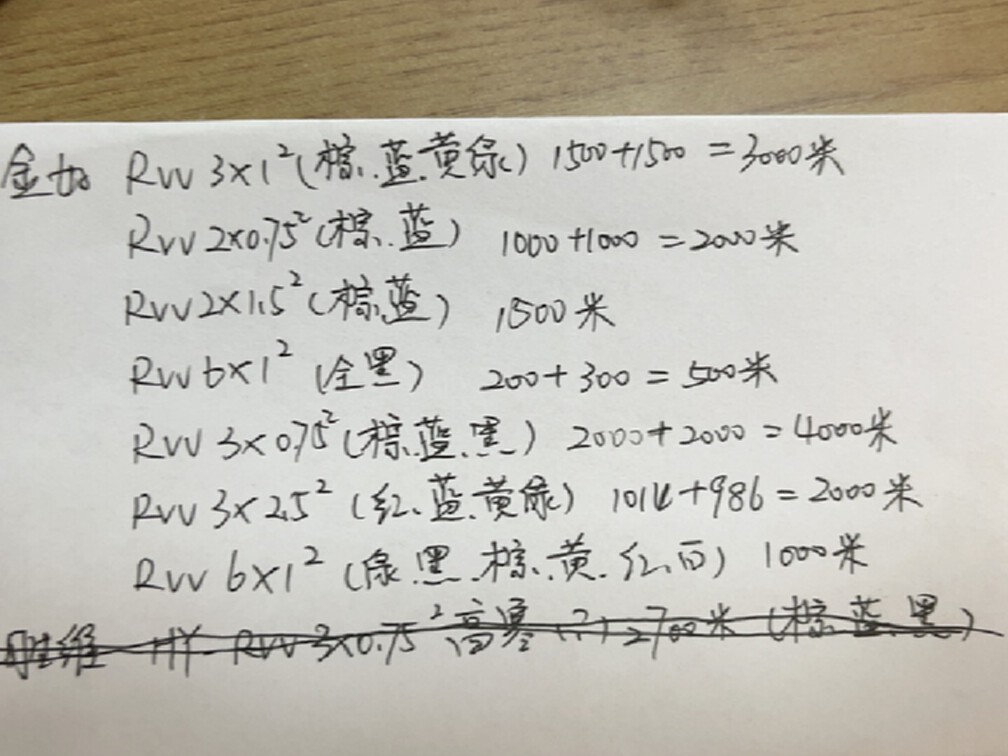 金 RVV 3×1²(棕.蓝.黄绿) 1500+1500=3000米
RVV 2×0.75²(棕.蓝) 1000+1000=2000米
RVV 2×1.5²(棕.蓝) 1500米
RVV 6×1² (全黑) 200+300=500米
RVV 3×0.75²(棕.蓝.黑) 2000+2000=4000米
RVV 3×2.5² (红.蓝.黄绿) 1014+986=2000米
RVV 6×1² (绿.黑.棕.黄.红.白) 1000米
维 RVV 3×0.75² 高寒(2) 2700米 (棕.蓝.黑)